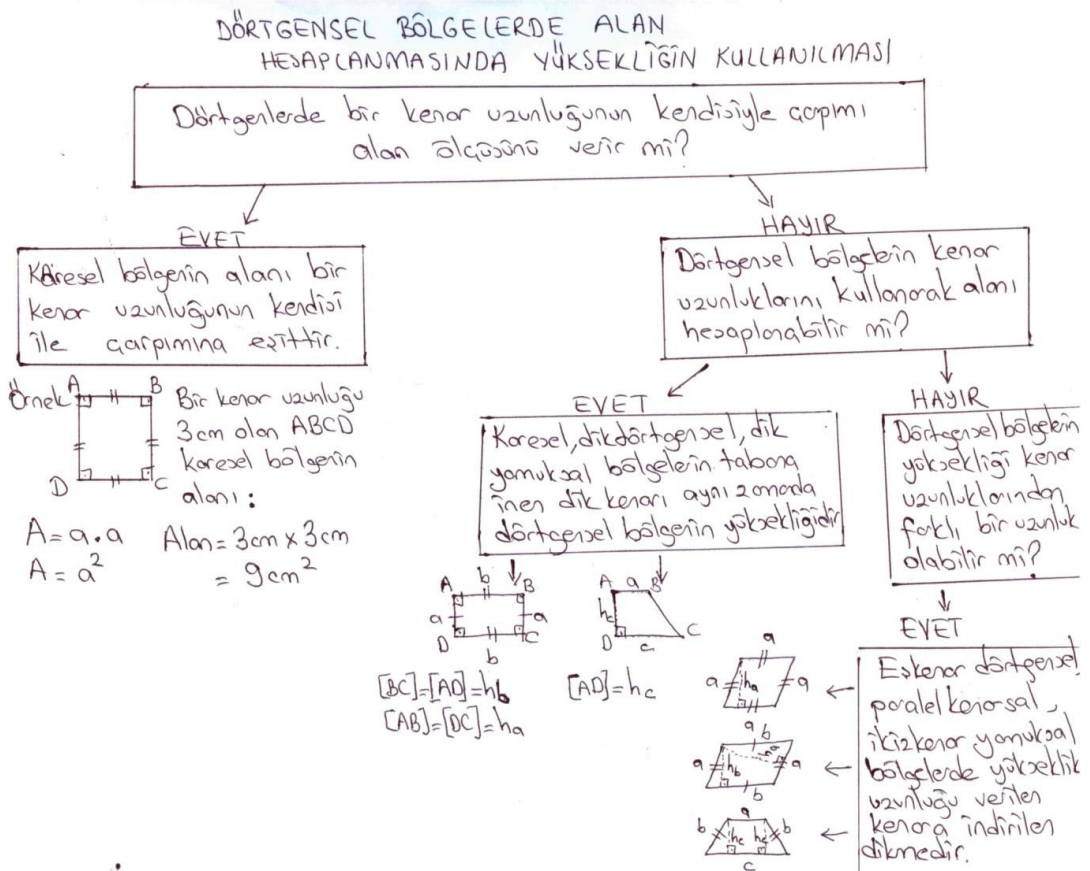 DÖRTGENSEL BÖLGELERDE ALAN
HESAPLANMASINDA YÜKSEKLİĞİN KULLANILMASI
Dörtgenlerde bir kenar uzunluğunun kendisiyle çarpımı
alan ölçüsünü verir mi?
EVET
Karesel bölgenin alanı bir
kenar uzunluğunun kendisi
ile çarpımına eşittir.
Örnek
A
B
D
C
Bir kenar uzunluğu
3cm olan ABCD
karesel bölgenin
alanı:
A = a.a
A = a²
Alan = 3cm x 3cm
= 9cm²
HAYIR
Dörtgensel bölgelerin kenar
uzunluklarını kullanarak alanı
hesaplanabilir mi?
EVET
Karesel, dikdörtgensel, dik
yamuksal bölgelerin tabana
inen dik kenarı aynı zamanda
dörtgensel bölgenin yüksekliğidir
A b B
a a
D C
b
[BC]=[AD]=hb
[AB]=[DC]=ha
A a B
hc
D c C
[AD]=hc
HAYIR
Dörtgensel bölgelerin
yüksekliği kenar
uzunluklarından
farklı bir uzunluk
olabilir mi?
EVET
Eşkenar dörtgensel,
paralelkenarsal,
ikizkenar yamuksal
bölgelerde yükseklik
uzunluğu verilen
kenara indirilen
dikmedir.
a
a ha a
b
a hb ha a
b
a
b hc hc b
c